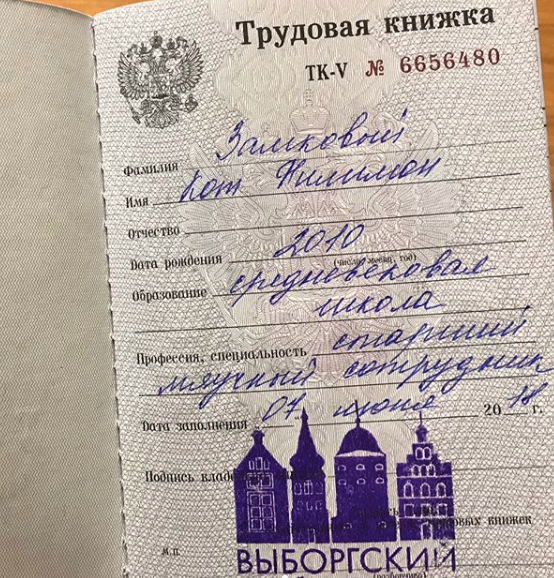 Трудовая книжка
ТК-V № 6656480
Фамилия Замковый
Имя Кот Филимон
Отчество
Дата рождения 2010
(число, месяц, год)
Образование средневековая
школа
Профессия, специальность старший
мяучный сотрудник
Дата заполнения 07 июня 2018 г.
Подпись владельца
трудовых книжек
М.П.
ВЫБОРГСКИЙ
(разборчиво)